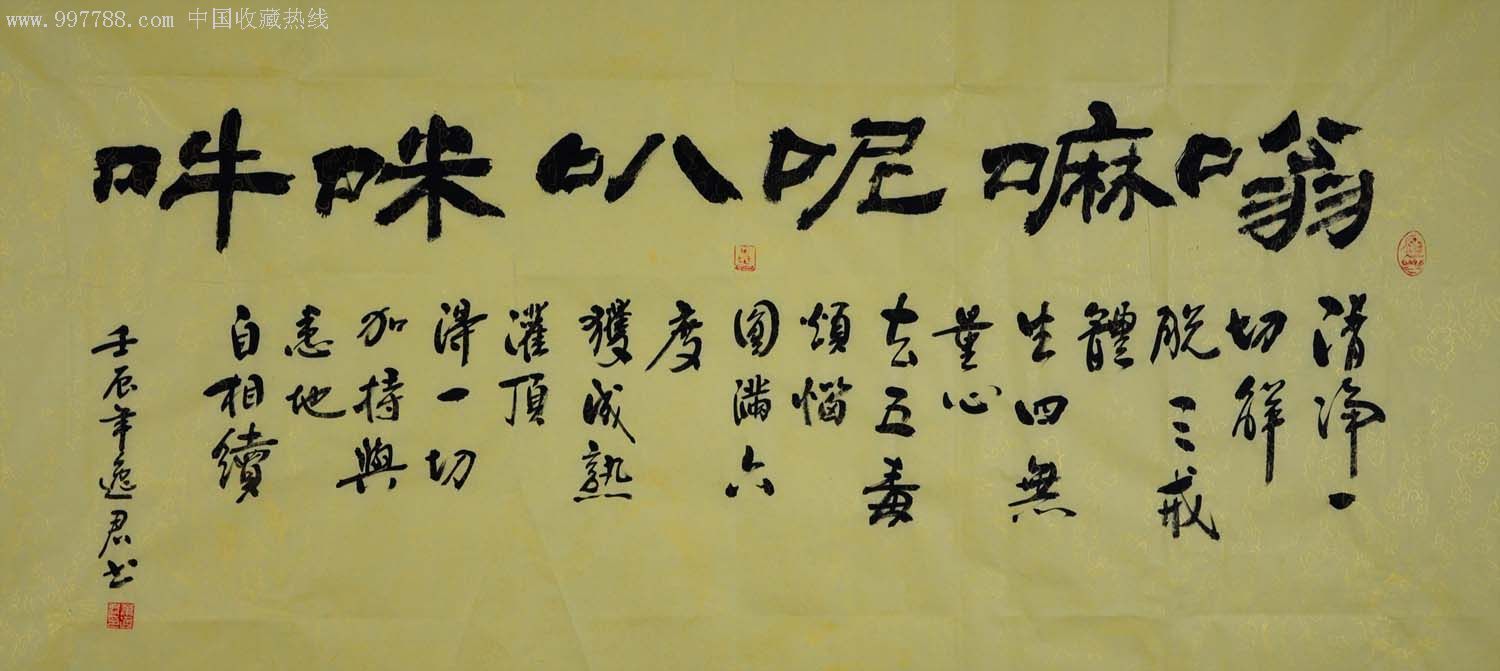 www.997788.com 中国收藏热线
嗡嘛呢叭咪吽
清净一
切解
脱三戒
體
生四無
量心
去五毒
煩惱
圓滿六
度
獲成熟
灌頂
得一切
加持與
悉地
自相續
壬辰年逸君书